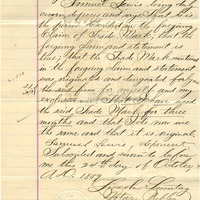 I Samuel Lewis being duly
sworn deposes and says that he is
the person described in the foregoing
Claim of Trade Mark, that the
foregoing claim and statement is
true, that the Trade Mark mentioned
in the foregoing claim and statement
was originated and designated
the said firm for myself and my
exclusive use, that I have used
the said Trade Mark for three
months and that I do now use
the same and that it is original
Samuel Lewis,
Subscribed and sworn to before
me this 24th day of October
A.D. 1889
Joseph
Notary Public